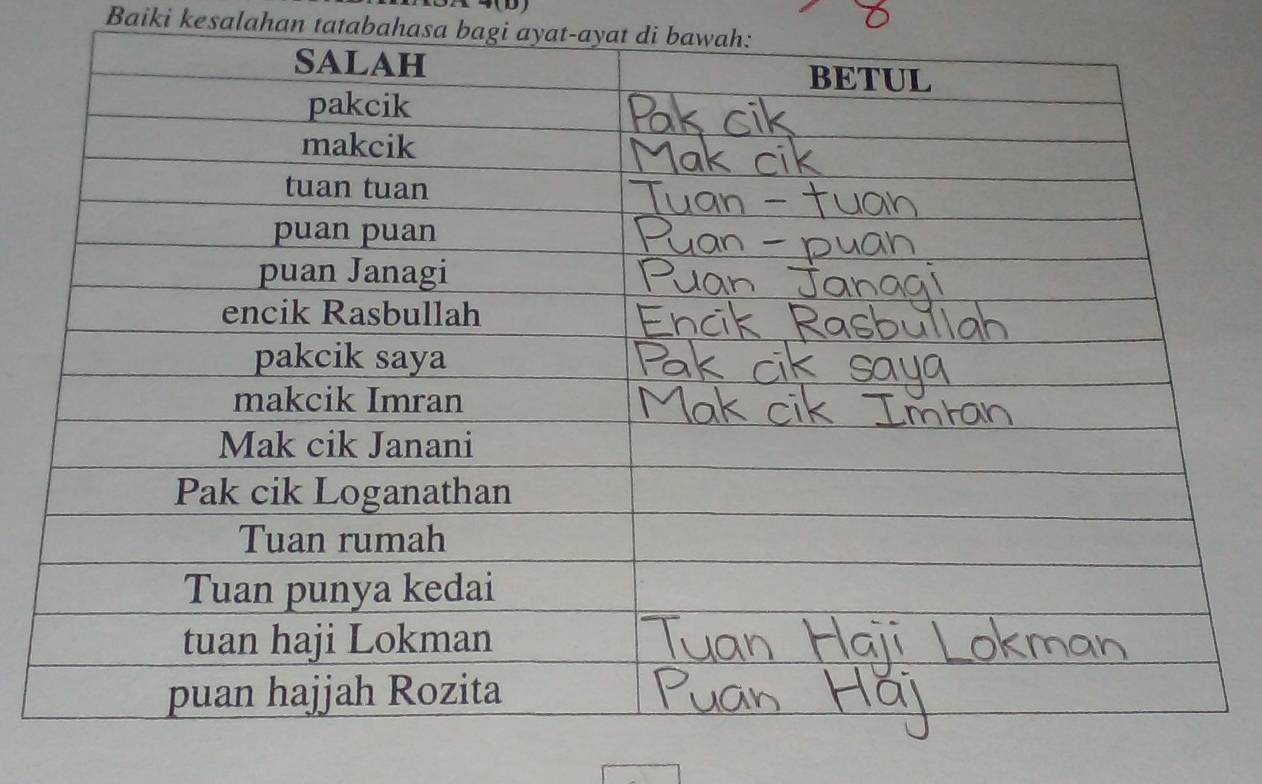 4(B)
8
Baiki kesalahan tatabahasa bagi ayat-ayat di bawah:
SALAH BETUL
pakcik Pak cik
makcik Mak cik
tuan tuan Tuan - tuan
puan puan Puan - puan
puan Janagi Puan Janagi
encik Rasbullah Encik Rasbullah
pakcik saya Pak cik saya
makcik Imran Mak cik Imran
Mak cik Janani
Pak cik Loganathan
Tuan rumah
Tuan punya kedai
tuan haji Lokman Tuan Haji Lokman
puan hajjah Rozita Puan Haj